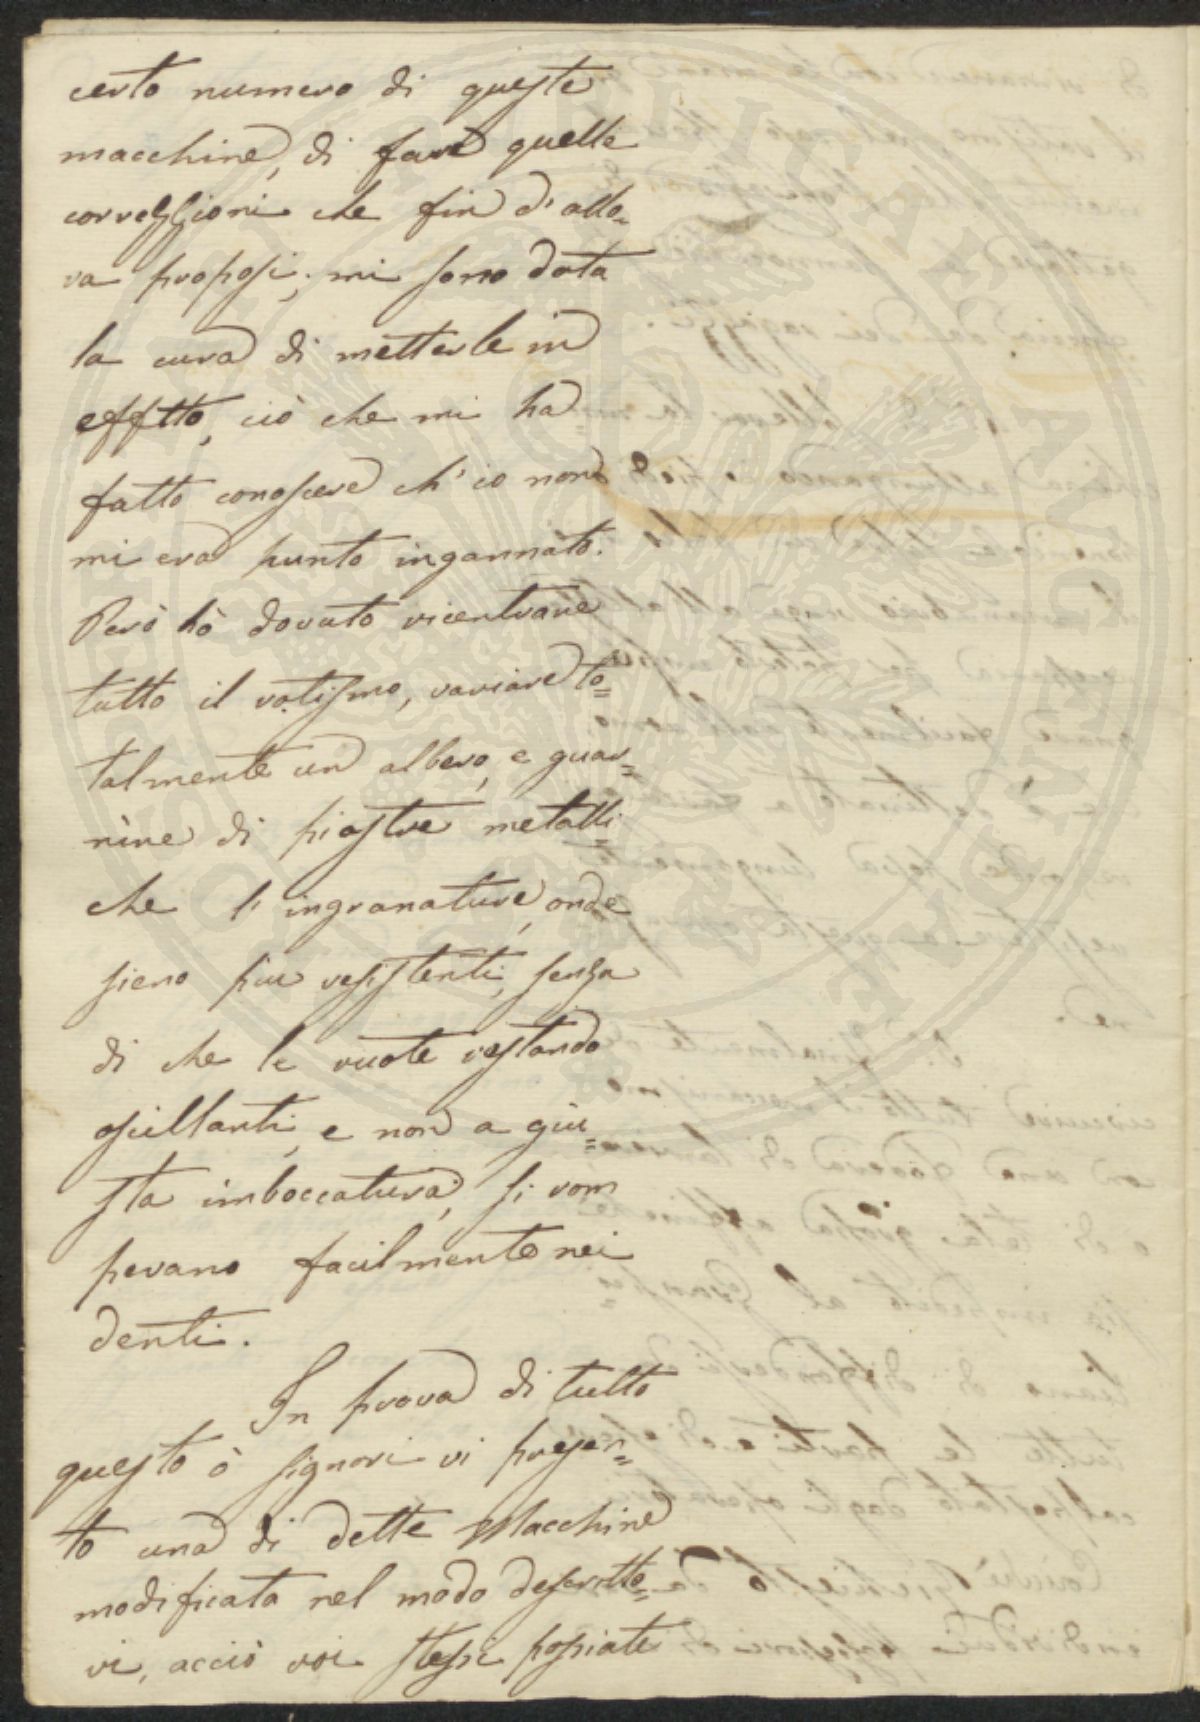 certo numero di queste
macchine, di fare quelle
correzzioni che fin d'allo=
ra proposi; mi sono data
la cura di metterle in
effetto, ciò che mi ha
fatto conoscere ch'io non
mi era punto ingannato.
Però hò dovuto ricentrare
tutto il rotismo, variare to=
talmente un albero, e guar=
nire di piastre metalli=
che l'ingranature, onde
sieno piu resistenti, senza
di che le ruote restando
oscillanti, e non a giu=
sta imboccatura, si rom
pevano facilmente nei
denti.
In prova di tutto
questo ò signori vi presen=
to una di dette Macchine
modificata nel modo descritto=
vi, acciò voi stessi possiate